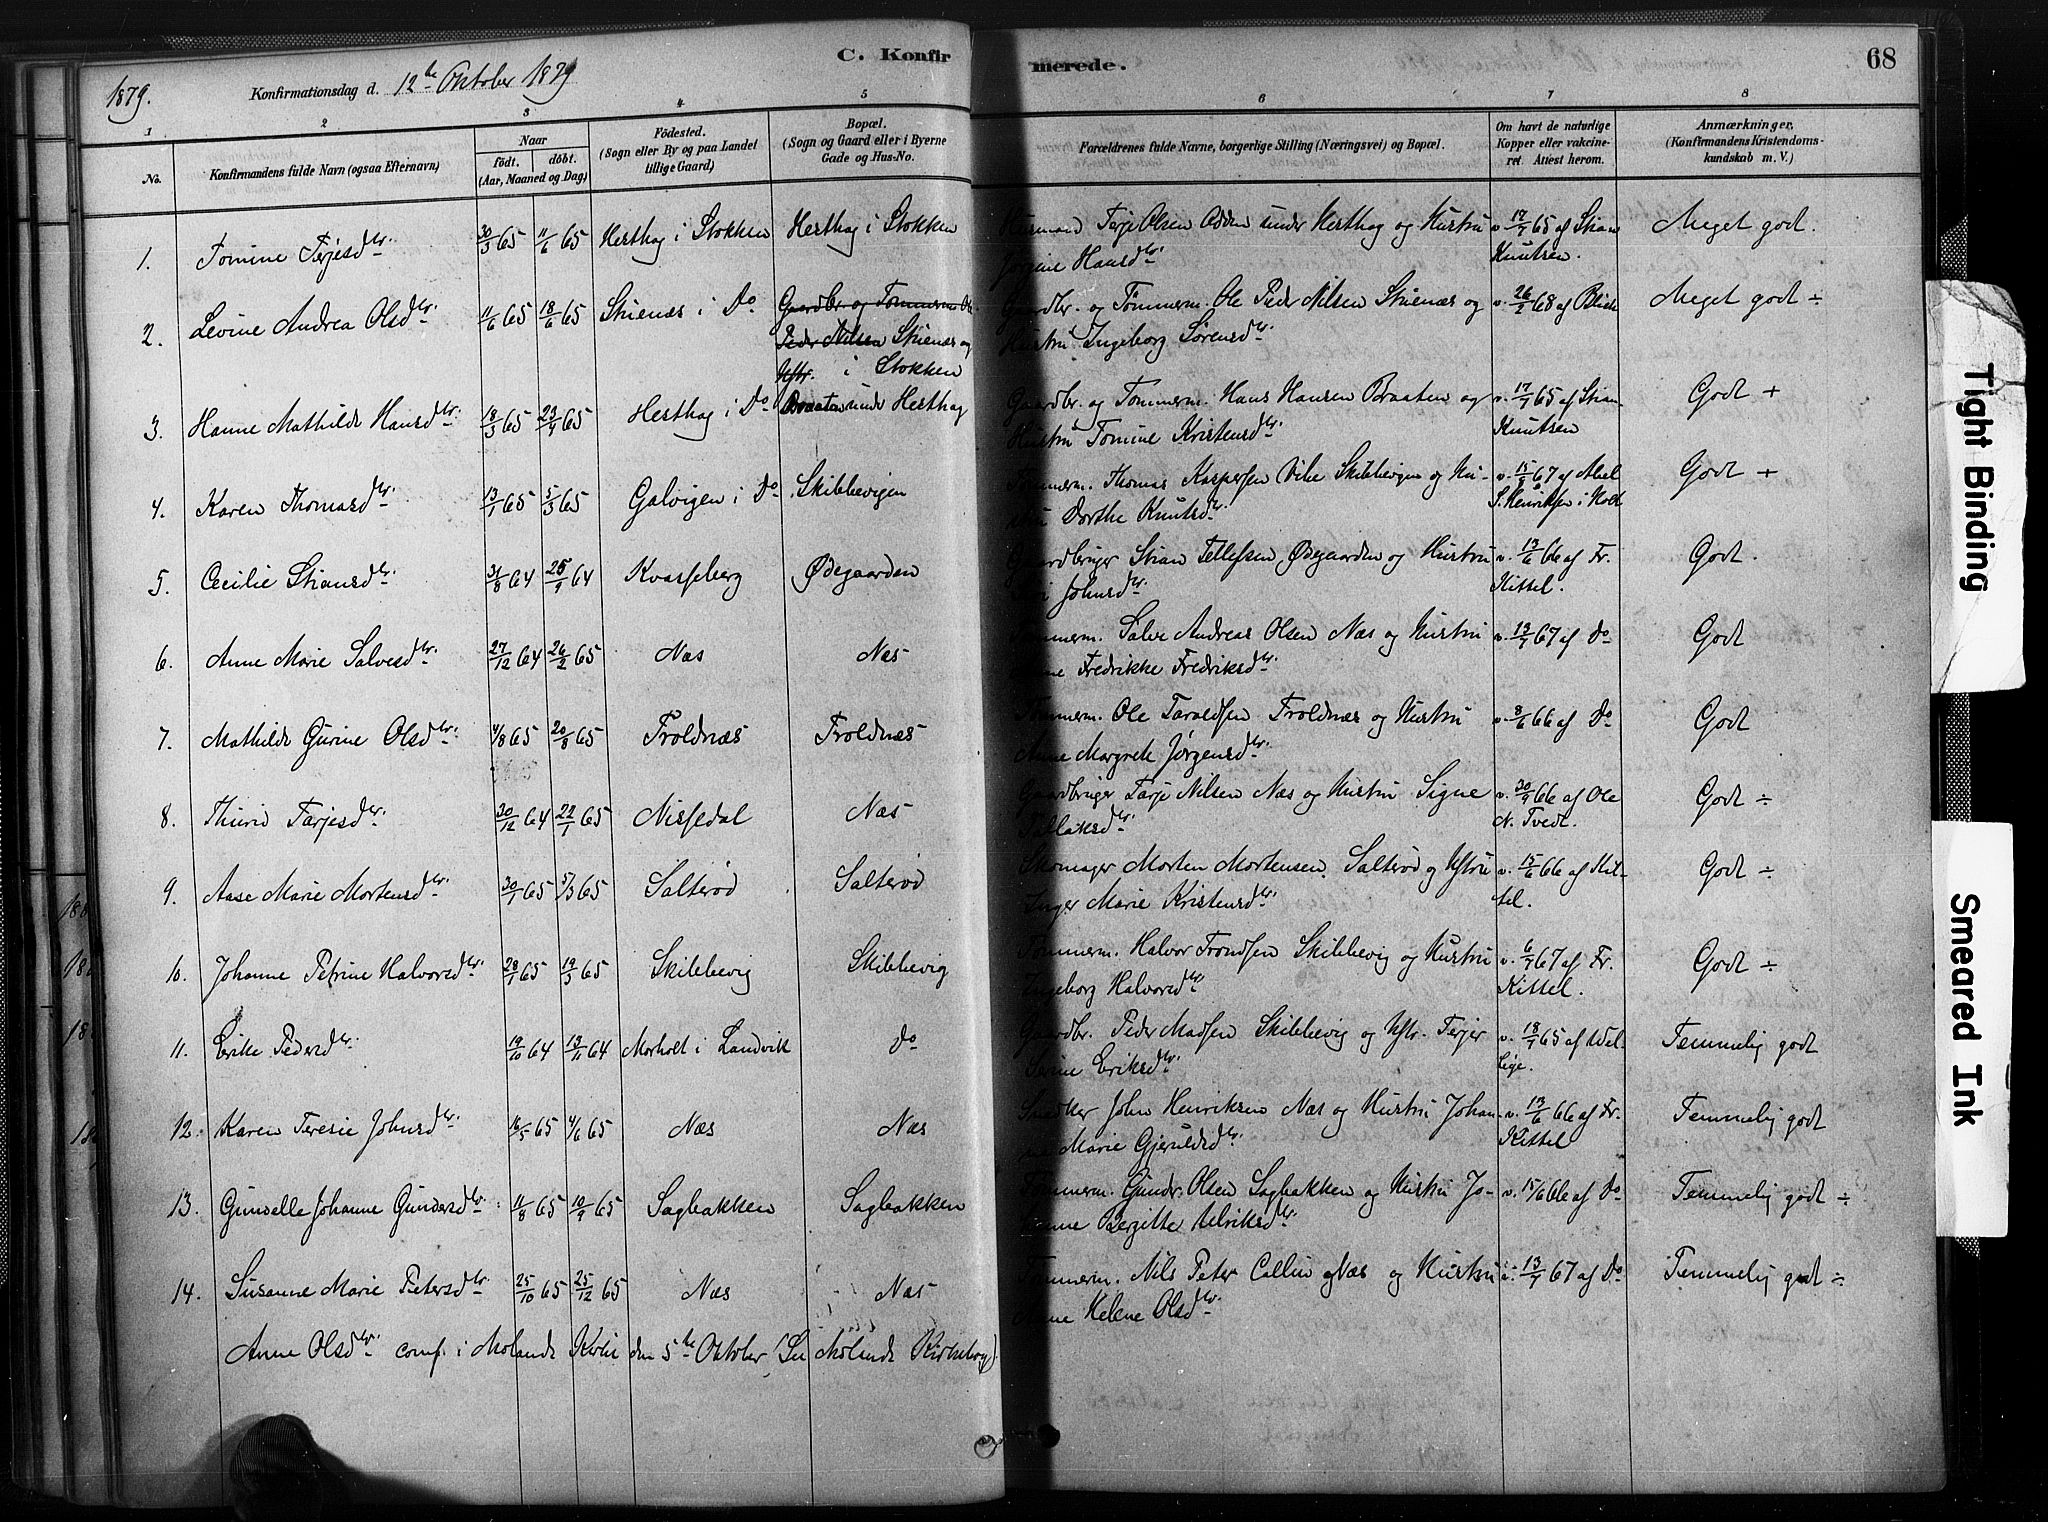 C. Konfirmerede.
68
1879.
Konfirmationsdag d. 12te Oktober 1879
1 2 3 4 5 6 7 8
No.
Konfirmandens fulde Navn (ogsaa Efternavn)
Naar
født. døbt.
(Aar, Maaned og Dag)
Fødested.
(Sogn eller By og paa Landet
tillige Gaard)
Bopæl.
(Sogn og Gaard eller i Byerne
Gade og Hus-No.
Forældrenes fulde Navne, borgerlige Stilling (Næringsvei) og Bopæl.
Om havt de naturlige
Kopper eller vakcine-
ret. Attest herom.
Anmærkninger,
(Konfirmandens Kristendoms-
kundskab m. V.)
1. Tomine Terjesdtr. 30/3 65 11/6 65 Herthag i Stokken Herthag i Stokken Husmand Terje Olsen Odden under Herthag og Hustru v. 17/7 65 af Stian Meget godt.
Jorgine Hansdtr. Knutsen.
2. Levine Andrea Olsdtr. 11/6 65 18/6 65 Stuenæs i Do Gaardbr. og Tømmerm. Ole Gaardbr. og Tømmerm. Ole Peder Nilsen Stuenæs og v. 26/2 68 af Meget godt ÷
Peder Nilsen Stuenæs og Hustru Ingeborg Sørensdtr.
Hstr. i Stokken
3. Hanne Mathilde Hansdtr. 18/3 65 23/4 65 Herthag i Do Braaten under Herthag Gaardbr. og Tømmerm. Hans Hansen Braaten og v. 17/7 65 af Stian Godt +
Hustru Tomine Kristensdtr. Knutsen
4. Karen Thomasdtr. 13/1 65 5/3 65 Galvigen i Do Skibbevigen Tømmerm. Thomas Kaspersen Skibbevigen og Hu- v. 15/8 67 af Abel Godt +
stru Dorthe Knutsdtr. S. Henriksen i Holt
5. Cecilie Stiansdtr. 31/8 64 25/9 64 Kvasseberg Ødegaarden Gaardbruger Stian Tellefsen Ødegaarden og Hustru v. 13/6 66 af Fr. Godt.
Johnsdtr. Kittel.
6. Anne Marie Salvesdtr. 27/12 64 26/2 65 Næs Næs Tømmerm. Salve Andreas Olsen Næs og Hustru v. 13/7 67 af Do Godt
Fredrikke Fredriksdtr.
7. Mathilde Gurine Olsdtr. 4/8 65 20/8 65 Troldnæs Troldnæs Tømmerm. Ole Taraldsen Troldnæs og Hustru v. 8/6 66 af Do Godt
Anne Margrete Jørgensdtr.
8. Thurid Tarjesdtr. 30/12 64 22/1 65 Nissedal Næs Gaardbruger Tarje Nilsen Næs og Hustru Signe v. 30/9 66 af Ole Godt ÷
N. Tvedt.
9. Aase Marie Mortensdtr. 30/1 65 5/3 65 Salterød Salterød Skomager Morten Mortensen Salterød og Hstru v. 15/6 66 af Kit- Godt ÷
Inger Marie Kristensdtr. tel.
10. Johanne Petrine Halvorsdtr. 28/1 65 19/3 65 Skibbevig Skibbevig Tømmerm. Halvor Trondsen Skibbevig og Hustru v. 6/7 67 af Fr. Godt ÷
Ingeborg Halvorsdtr. Kittel.
11. Erike Pedersdtr. 19/10 64 13/11 64 Morholt i Landvik Do Gaardbr. Peder Madsen Skibbevig og Hstr. Terjer v. 18/7 65 af Temmelig godt
Serine Eriksdtr.
12. Karen Teresie Johnsdtr. 16/5 65 4/6 65 Næs Næs Snedker John Henriksen Næs og Hustru Johan- v. 13/6 66 af Fr. Temmelig godt
ne Marie Gjeruldsdtr. Kittel
13. Gunselle Johanne Gundersdtr. 11/8 65 10/9 65 Sagbakken Sagbakken Tømmerm. Gunder Olsen Sagbakken og Hustru Jo- v. 15/6 66 af Do Temmelig godt ÷
hanne Bergitte Ulriksdtr.
14. Susanne Marie Petersdtr. 25/10 65 25/12 65 Næs Næs Tømmerm. Nils Peter Callin Næs og Hustru v. 13/7 67 af Do Temmelig godt ÷
Anne Helene Olsdtr.
Anne Olsdtr. conf. i Molands Kirke den 5te Oktober (Se Molands Kirkebog).
Tight Binding
Smeared Ink